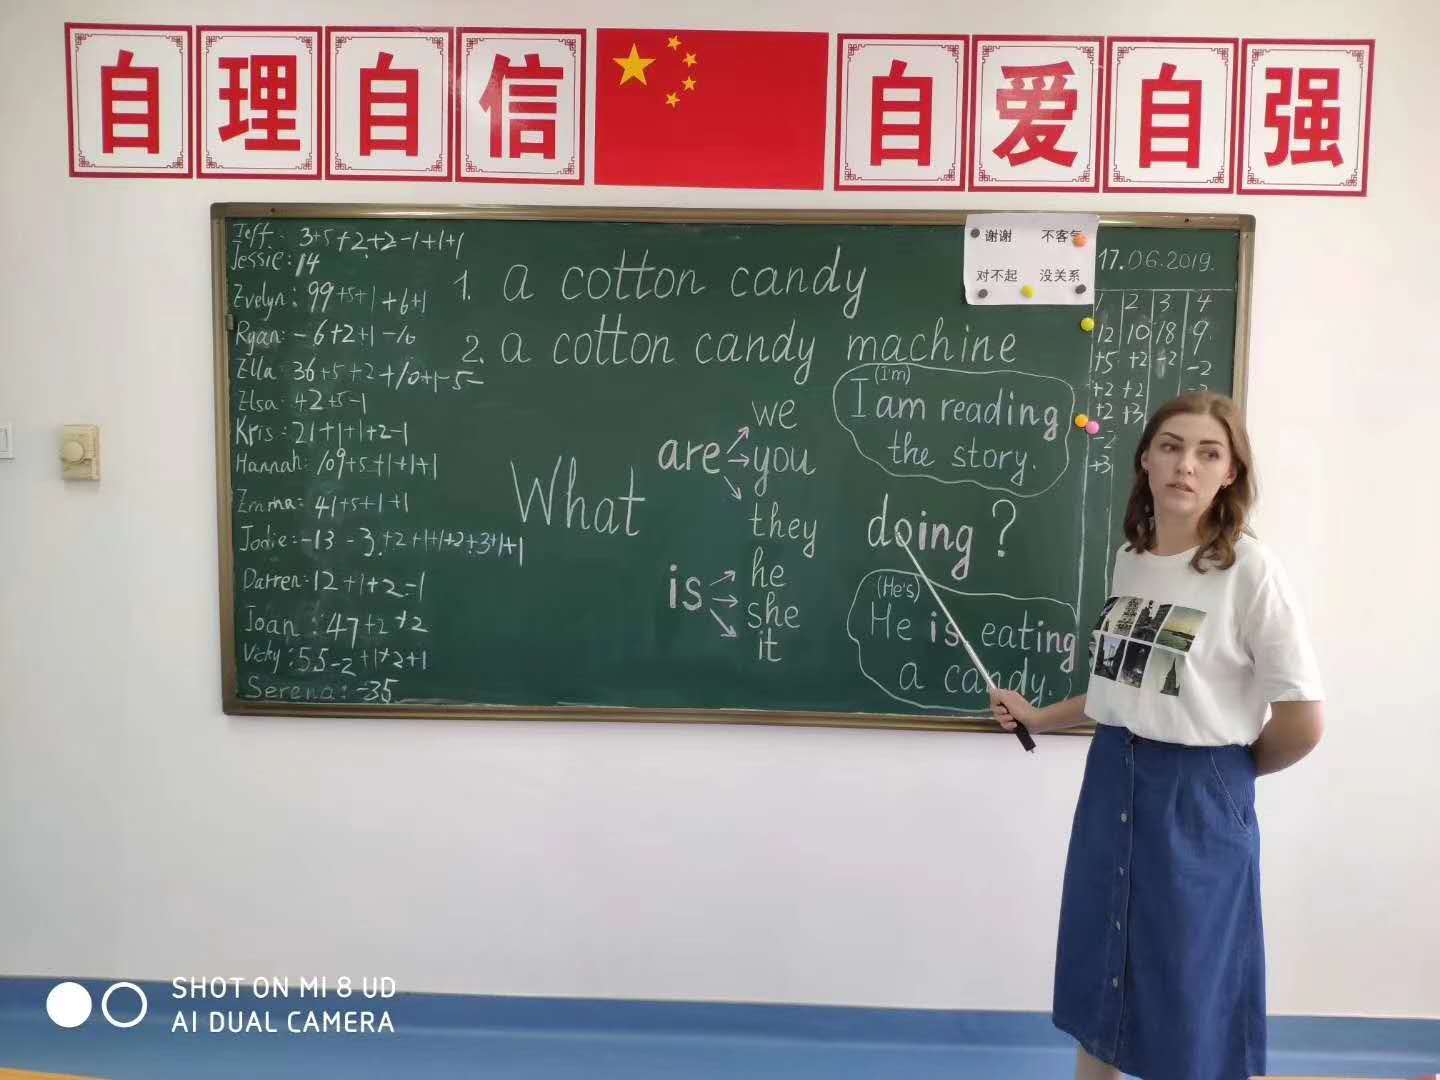 自理自信 自爱自强
谢谢 不客气
对不起 没关系
17.06.2019.
Jeff: 3+5+2+2-1+1+1
Jessie: 14
Evelyn: 99+5+1+6+1
Ryan: -6+2+1-10
Ella: 36+5+2+10+1-5-
Elsa: 42+5-1
Kris: 21+1+1+2-1
Hannah: 109+5+1+1+1
Emma: 41+5+1+1
Jodie: -13-3+2+1+1+2+3+1+1
Darren: 12+1+2-1
Joan: 47+2+2
Vicky: 55-2+1+2+1
Serena: -35
1. a cotton candy
2. a cotton candy machine
What
are
we
you
they
is
he
she
it
doing?
(I'm)
I am reading
the story.
(He's)
He is eating
a candy.
1 2 3 4
12 10 18 9
+5 +2 -2 -2
+2 +2
+2 +3
-2
+3
SHOT ON MI 8 UD
AI DUAL CAMERA